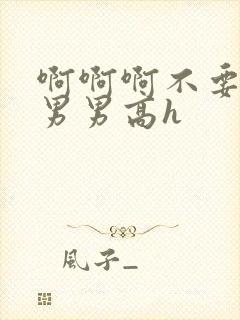 啊啊啊不要
男男高h
風子_